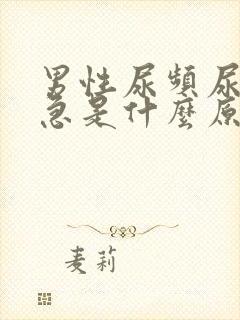 男性尿頻尿
急是什麼原
麦莉